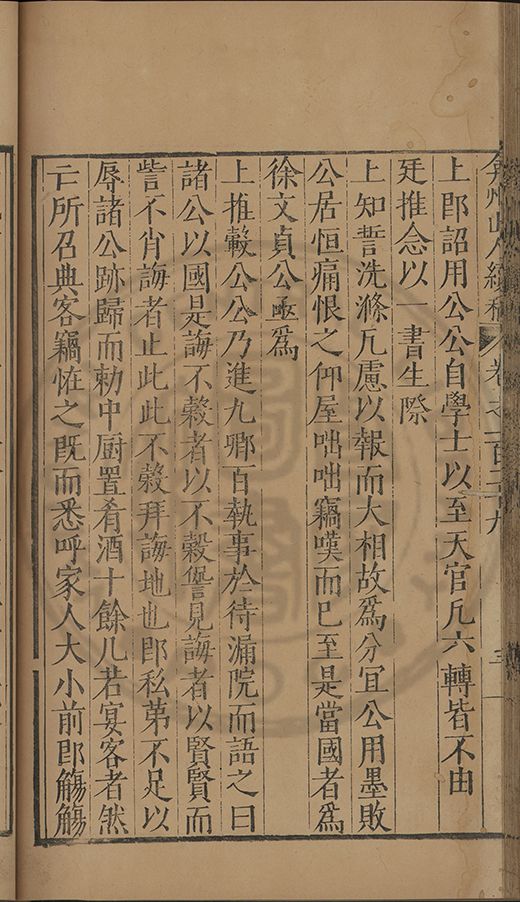 弇州山人續稿 卷之一百三十九 三
上即詔用公公自學士以至天官凡六轉皆不由
廷推念以一書生際
上知誓洗滌凡慮以報而大相故爲分宜公用墨敗
公居恒痛恨之仰屋咄咄竊嘆而已至是當國者爲
徐文貞公亟爲
上推轂公公乃進九卿百執事於待漏院而語之曰
諸公以國是誨不穀者以不穀讐見誨者以賢賢而
訾不肖誨者止此此不穀拜誨地也即私第不足以
辱諸公跡歸而勅中厨置肴酒十餘几若宴客者然
亡所召典客竊恠之既而悉呼家人大小前即觴觴